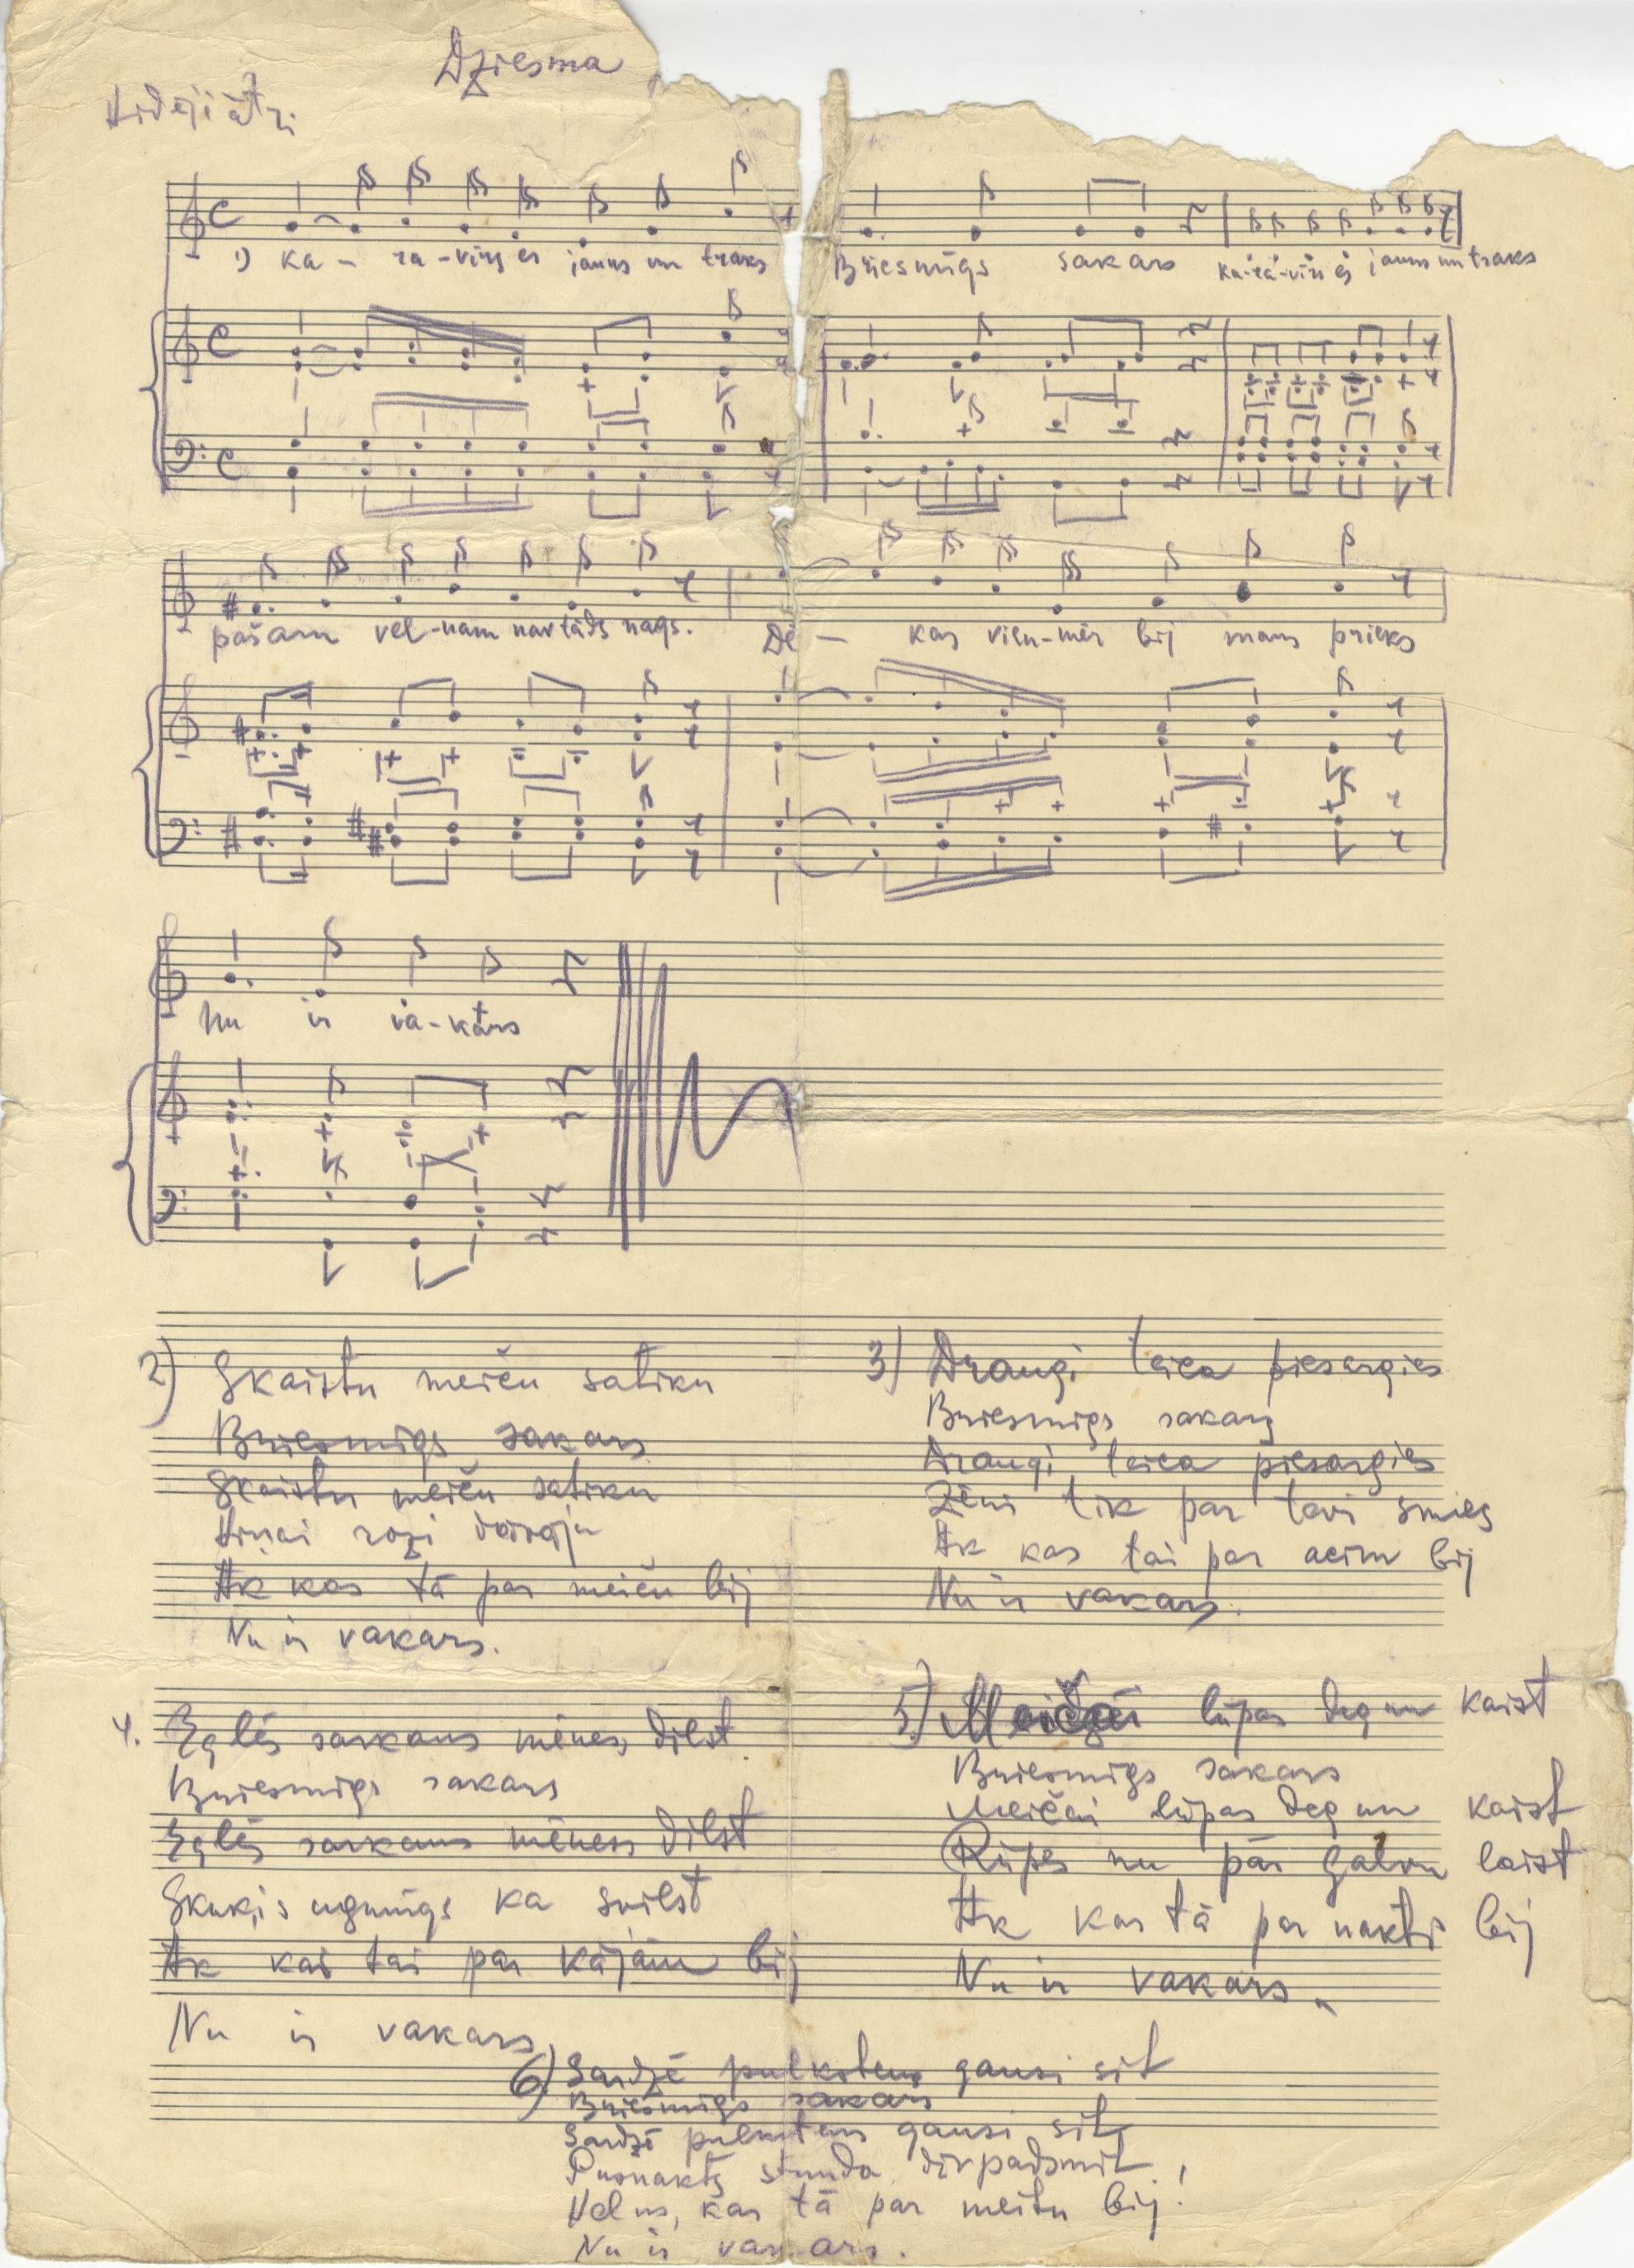 Dziesma
Vidēji ātri
1) Ka - ra - vīrs es jauns un traks Briesmīgs sakars Ka-ra-vīrs es jauns un traks
pašam velnam nav tāds nags. Dē - kas vien-mēr bij mans prieks
Nu ir va-kars
2) Skaistu meiču satiku
Briesmīgs sakars
Skaistu meiču satiku
Viņai rozi dāvāju
Ak kas tā par meiču bij
Nu ir vakars.
3) Draugi teica piesargies
Briesmīgs sakars
Draugi teica piesargies
Zēni tik par tevi smies
Ak kas tai par acīm bij
Nu ir vakars.
4. Eglēs sarkans mēness dilst
Briesmīgs sakars
Eglēs sarkans mēness dilst
Skuķis ugunīgs ka svilst
Ak kas tai par kājām bij
Nu ir vakars
5) Meičai lūpas deg un kaist
Briesmīgs sakars
Meičai lūpas deg un kaist
Rūpes nu pār galvu laist
Ak kas tā par nakti bij
Nu ir vakars.
6) Sardzē pulkstens gausi sit
Briesmīgs sakars
Sardzē pulkstens gausi sit
Pusnakts stunda divpadsmit!
Velns, kas tā par meitu bij!
Nu ir vakars.